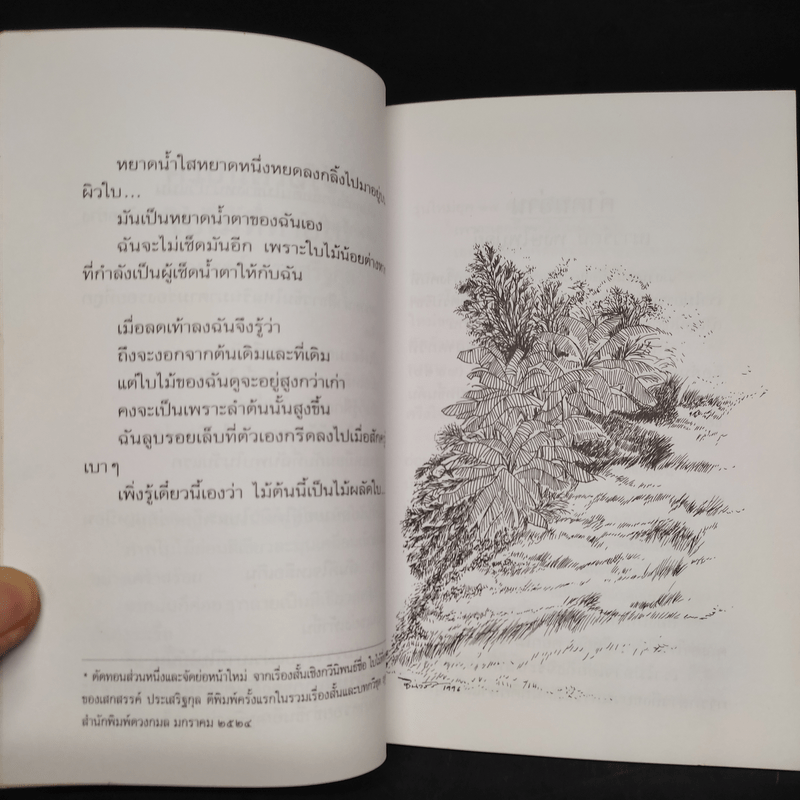 หยาดน้ำใสหยาดหนึ่งหยดลงกลิ้งไปมาอยู่บน
ผิวใบ...
มันเป็นหยาดน้ำตาของฉันเอง
ฉันจะไม่เช็ดมันอีก เพราะใบไม้น้อยต่างหาก
ที่กำลังเป็นผู้เช็ดน้ำตาให้กับฉัน
เมื่อลดเท้าลงฉันจึงรู้ว่า
ถึงจะงอกจากต้นเดิมและที่เดิม
แต่ใบไม้ของฉันดูจะอยู่สูงกว่าเก่า
คงจะเป็นเพราะลำต้นนั้นสูงขึ้น
ฉันลูบรอยเล็บที่ตัวเองกรีดลงไปเมื่อสักครู่
เบาๆ
เพิ่งรู้เดี๋ยวนี้เองว่า ไม้ต้นนี้เป็นไม้ผลัดใบ...
* คัดทอนส่วนหนึ่งและจัดย่อหน้าใหม่ จากเรื่องสั้นเชิงกวีนิพนธ์ชื่อ
ของเสกสรรค์ ประเสริฐกุล ตีพิมพ์ครั้งแรกในรวมเรื่องสั้นและบทกวีชุด
สำนักพิมพ์ดวงกมล มกราคม ๒๕๒๔
1996